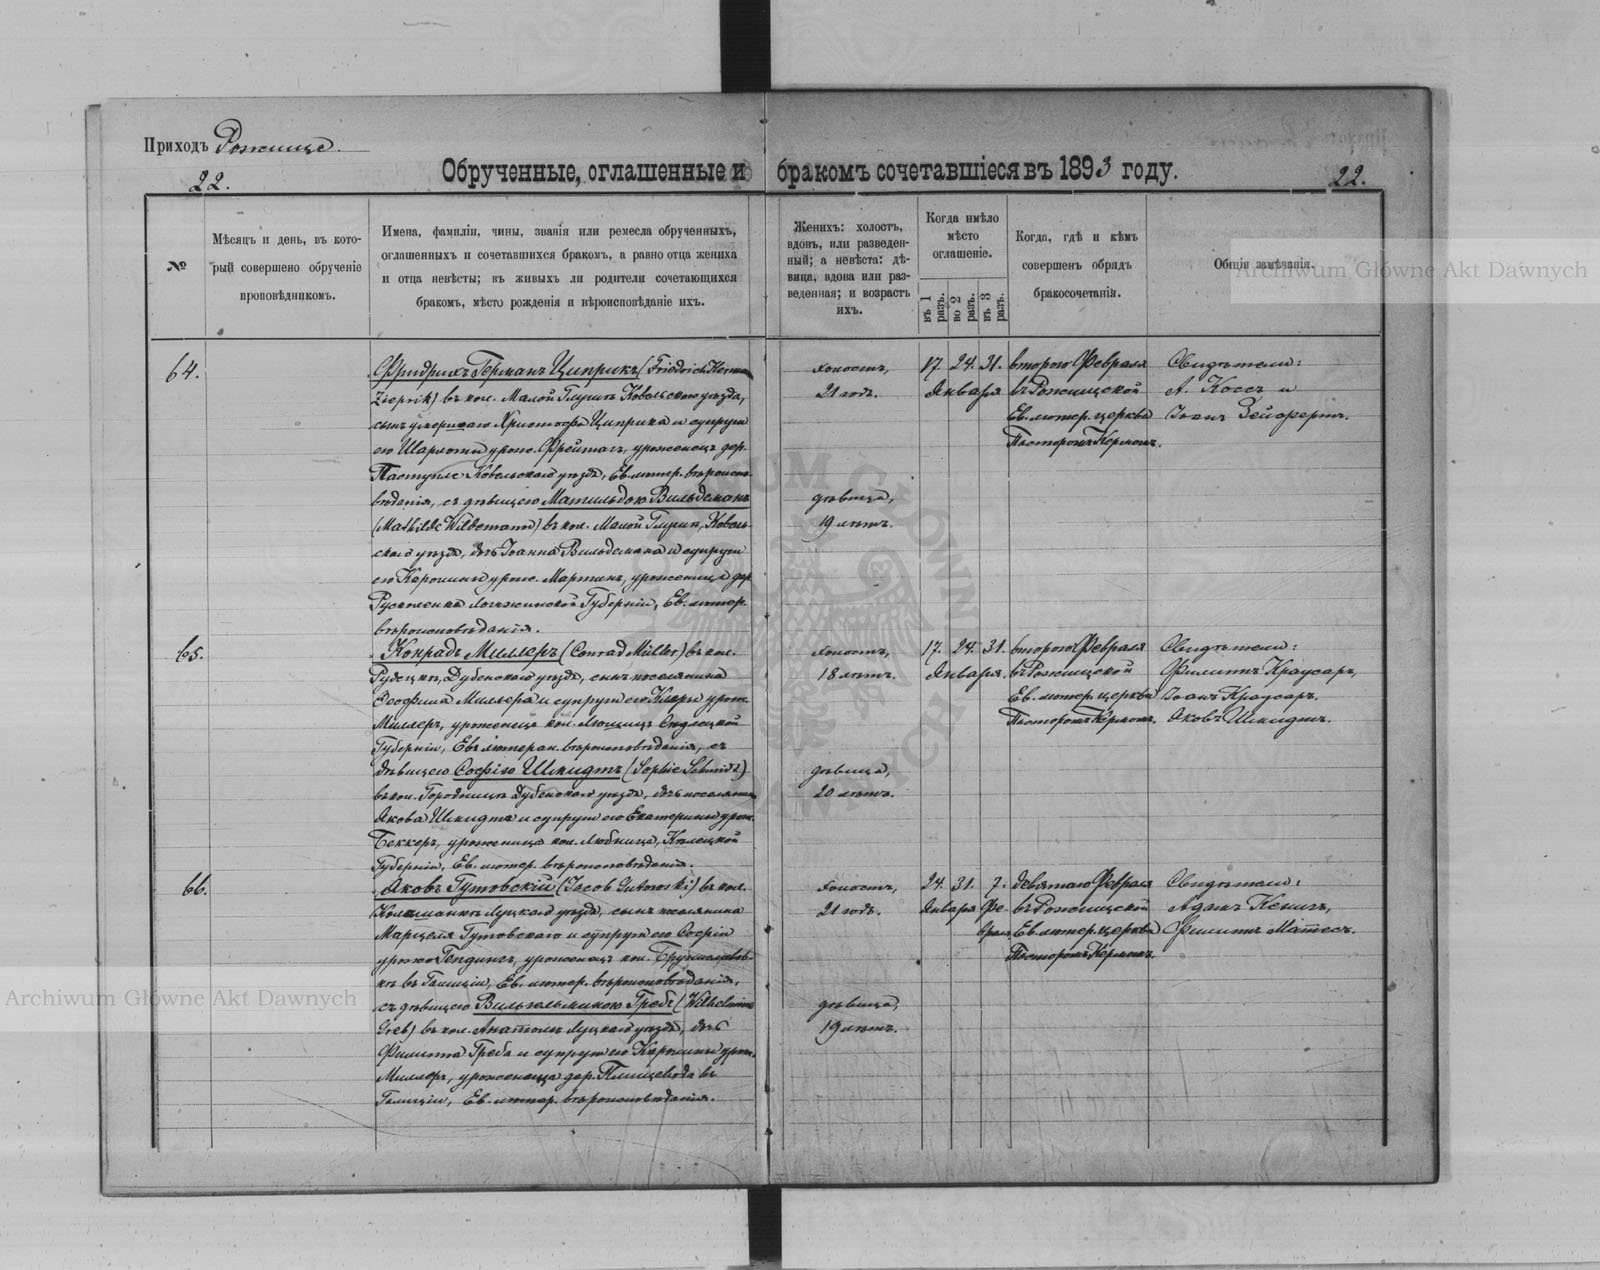 Приходъ Рожище.
Обрученные, оглашенные и бракомъ сочетавшіеся въ 1893 году.
22.
22.
№
Мѣсяцъ и день, въ кото-
рый совершено обрученіе
проповѣдникомъ.
Имена, фамиліи, чины, званія или ремесла обрученныхъ,
оглашенныхъ и сочетавшихся бракомъ, а равно отца жениха
и отца невѣсты; въ живыхъ ли родители сочетающихся
бракомъ, мѣсто рожденія и вѣроисповѣданіе ихъ.
Женихъ: холостъ,
вдовъ, или разведен-
ный; а невѣста: дѣ-
вица, вдова или раз-
веденная; и возрастъ
ихъ.
Когда имѣло
мѣсто
оглашеніе.
въ 1 разъ.
во 2 разъ.
въ 3 разъ.
Когда, гдѣ и кѣмъ
совершенъ обрядъ
бракосочетанія.
Общія замѣчанія.
Archiwum Główne Akt Dawnych
64.
Фридрихъ Германъ Циприкъ (Friedrich Herman
Zieprik) въ кол. Малой Глушѣ Ковельскаго уѣзда,
сынъ умершаго Христофа Циприка и супруги
его Шарлоты урожд. Фрейтагъ, уроженецъ дер.
Ковельскаго уѣзда, Ев. лютер. вѣроиспо-
вѣданія, съ дѣвицею Матильдою Вильдеманъ
(Mathilde Wildemann) въ кол. Малой Глушѣ, Ковель-
скаго уѣзда, дочь Іоанна Вильдемана и супруги
его Каролины урож. Мартинъ, уроженица дер.
Губерніи, Ев. лютер.
вѣроисповѣданія.
холостъ,
21 годъ.
дѣвица,
19 лѣтъ.
17. 24. 31.
Января
второго Февраля
въ Рожищской
Ев. лютер. церкви
Пасторомъ Керномъ.
Свидѣтели:
А. Коссъ и
Іоанъ Зейфертъ.
65.
Конрадъ Миллеръ (Conrad Müller) въ кол.
Дубенскаго уѣзда, сынъ поселянина
Теофила Мильера и супруги его Клары урож.
Миллеръ, уроженецъ кол. Сѣдлецкой
Губерніи, Ев. лютеран. вѣроисповѣданія, съ
дѣвицею Софіею Шмидтъ (Sophie Schmidt)
въ кол. Дубенскаго уѣзда, дочь поселянина
Якова Шмидта и супруги его Екатерины урож.
Беккеръ, уроженица кол. Любница, Кѣлецкой
Губерніи, Ев. лютер. вѣроисповѣданія.
холостъ,
18 лѣтъ.
дѣвица,
20 лѣтъ.
17. 24. 31.
Января.
второго Февраля
въ Рожищской
Ев. лютер. церкви
Пасторомъ Керномъ.
Свидѣтели:
Филиппъ Краусаръ,
Іоанъ Краусаръ,
Яковъ Шмидтъ.
66.
Яковъ Гутовскій (Jacob Gutowski) въ кол.
Луцкаго уѣзда, сынъ поселянина
Марцеля Гутовскаго и супруги его Софіи
урожд. Гендингъ, уроженецъ кол.
въ Галиціи, Ев. лютер. вѣроисповѣданія,
съ дѣвицею Вильгельминою Гребъ (Wilhelmine
Greb) въ кол. Анатоль Луцкаго уѣзда, дочь
Филиппа Греба и супруги его Каролины урож.
Миллеръ, уроженица дер. въ
Галиціи, Ев. лютер. вѣроисповѣданія.
холостъ,
21 годъ.
дѣвица,
19 лѣтъ.
24. 31. 7.
Января Фе-
враля
девятаго Февраля
въ Рожищской
Ев. лютер. церкви
Пасторомъ Керномъ.
Свидѣтели:
Адамъ Кенигъ,
Филиппъ Матесъ.
Archiwum Główne Akt Dawnych